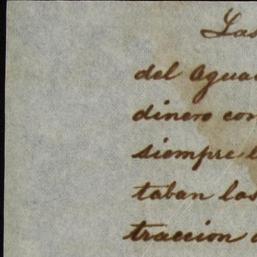 Las
del Agua
dinero con
siempre l
taban las
traccion